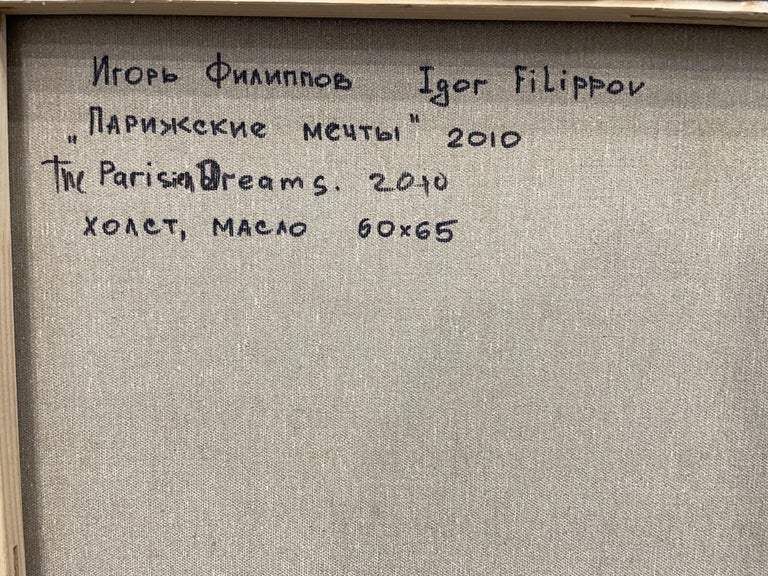 Игорь Филиппов Igor Filippov
„Парижские мечты" 2010
The Parisien Dreams. 2010
холст, масло 60x65